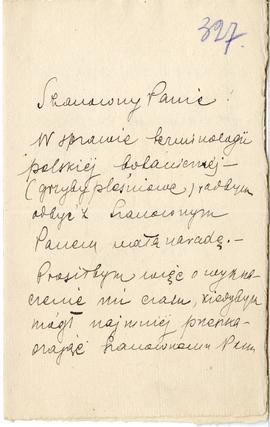 327.
Szanowny Panie!
W sprawie terminologii
polskiej botanicznej –
(grzyby pleśniowe) radbym
odbyć z Szanownym
Panem małą naradę. –
Prosiłbym więc o wyzna-
czenie mi czasu, kiedybym
mógł najmniej przeszka-
dzając Szanownemu Panu